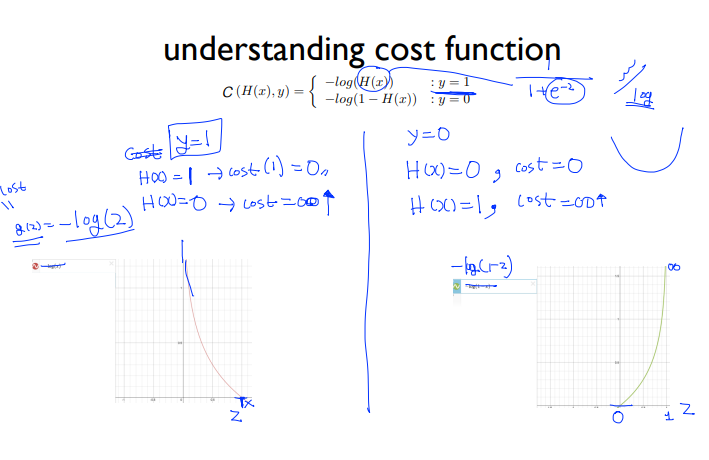 understanding cost function
C (H(x), y) = { −log(H(x)) : y = 1
−log(1 − H(x)) : y = 0
1
1+e^-z
log
Cost y=1
H(x) = 1 → cost(1) = 0
H(x)=0 → cost = ∞ ↑
cost
g(z) = -log(z)
y=0
H(x)=0, cost=0
H(x)=1, cost=∞↑
1
x
z
-log(1-z)
∞
0
1
z